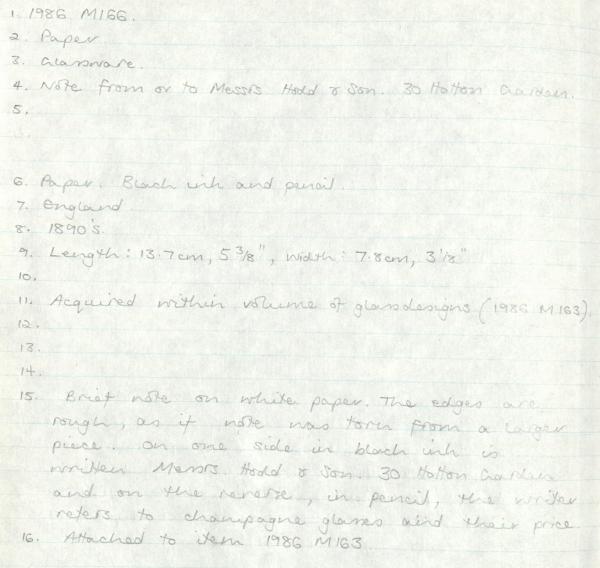 1. 1986 M166.
2. Paper
3. Glassware.
4. Note from or to Messrs Hodd & Son. 30 Hatton Garden.
5.
6. Paper. Black ink and pencil.
7. England
8. 1890's.
9. Length: 13.7cm, 5 3/8", Width: 7.8cm, 3 1/8"
10.
11. Acquired within volume of glassdesigns (1986 M163).
12.
13.
14.
15. Brief note on white paper. The edges are
rough, as if note was torn from a larger
piece. On one side in black ink is
written Messrs Hodd & Son. 30 Hatton Garden
and on the reverse, in pencil, the writer
refers to champagne glasses and their price.
16. Attached to item 1986 M163